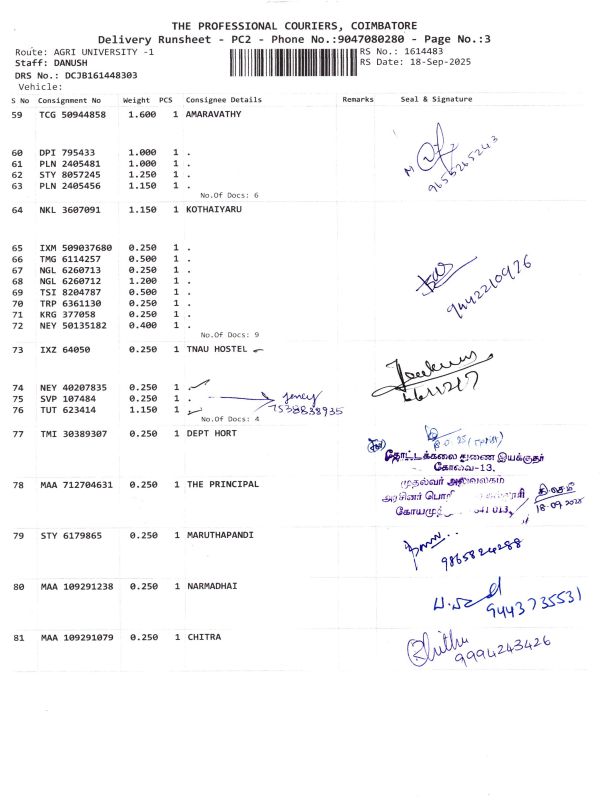 THE PROFESSIONAL COURIERS, COIMBATORE
Delivery Runsheet - PC2 - Phone No.:9047080280 - Page No.:3
Route: AGRI UNIVERSITY -1 RS No.: 1614483
Staff: DANUSH RS Date: 18-Sep-2025
DRS No.: DCJB161448303
Vehicle:
S No Consignment No Weight PCS Consignee Details Remarks Seal & Signature
59 TCG 50944858 1.600 1 AMARAVATHY
60 DPI 795433 1.000 1 .
61 PLN 2405481 1.000 1 .
62 STY 8057245 1.250 1 .
63 PLN 2405456 1.150 1 .
9655265243
No.Of Docs: 6
64 NKL 3607091 1.150 1 KOTHAIYARU
65 IXM 509037680 0.250 1 .
66 TMG 6114257 0.500 1 .
67 NGL 6260713 0.250 1 .
68 NGL 6260712 1.200 1 .
69 TSI 8204787 0.500 1 .
70 TRP 6361130 0.250 1 .
71 KRG 377058 0.250 1 .
72 NEY 50135182 0.400 1 .
9442210976
No.Of Docs: 9
73 IXZ 64050 0.250 1 TNAU HOSTEL
74 NEY 40207835 0.250 1 .
75 SVP 107484 0.250 1 . Jency
76 TUT 623414 1.150 1 . 7538838935
No.Of Docs: 4
77 TMI 30389307 0.250 1 DEPT HORT
தோட்டக்கலை துணை இயக்குநர்
கோவை-13.
78 MAA 712704631 0.250 1 THE PRINCIPAL
முதல்வர் அலுவலகம்
அரசினர் பொறி
கோயமுத் 641 013,
18-09-2025
79 STY 6179865 0.250 1 MARUTHAPANDI
9865824288
80 MAA 109291238 0.250 1 NARMADHAI
9443735531
81 MAA 109291079 0.250 1 CHITRA
Chithu
9994243426